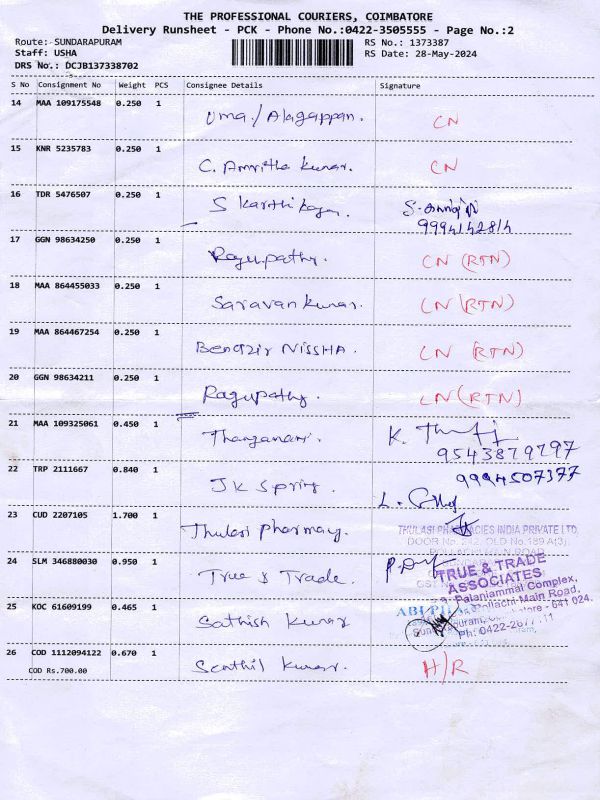 THE PROFESSIONAL COURIERS, COIMBATORE
Delivery Runsheet - PCK - Phone No.:0422-3505555 - Page No.:2
Route: SUNDARAPURAM
RS No.: 1373387
Staff: USHA
RS Date: 28-May-2024
DRS No.: DCJB137338702
S No Consignment No Weight PCS Consignee Details Signature
14 MAA 109175548 0.250 1 Uma./Alagappan. CN
15 KNR 5235783 0.250 1 C. Amritha Kumar. CN
16 TDR 5476507 0.250 1 S Karthikeyan.
9994142814
17 GGN 98634250 0.250 1 Ragupathy. CN (RTN)
18 MAA 864455033 0.250 1 Saravan Kumar. CN (RTN)
19 MAA 864467254 0.250 1 Benazir NISSHA. CN (RTN)
20 GGN 98634211 0.250 1 Ragupathy. CN (RTN)
21 MAA 109325061 0.450 1 K.
22 TRP 2111667 0.840 1 JK Spring. 9994507377
23 CUD 2207105 1.700 1 Thulasi Pharmacy.
THULASI PHARMACIES INDIA PRIVATE LTD,
24 SLM 346880030 0.950 1 True & Trade.
TRUE & TRADE
ASSOCIATES
Palaniammal Complex,
Pollachi Main Road,
641 024.
25 KOC 61609199 0.465 1 Sathish Kumar
26 COD 1112094122 0.670 1 Senthil Kumar. H/R
COD Rs.700.00